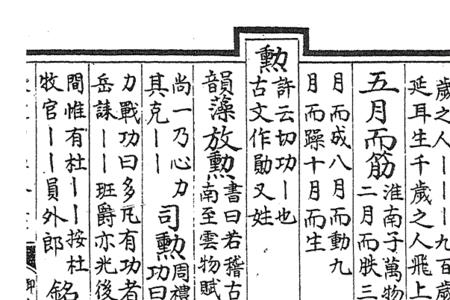 歲之人丨丨丨九百歲
延耳生千歲之人飛上
五月而筋淮南子萬物
二月而胅三
月而成八月而動九
月而躁十月而生
勲許云切功丨也
古文作勛又姓
韻藻放勲書曰若稽古
南至雲物賦
尚一乃心力
其克丨丨
司勲周禮
功曰
力戰功曰多凡有功者
岳誄丨丨班爵亦光後
間惟有杜丨丨按杜
牧官丨丨員外郎
銘